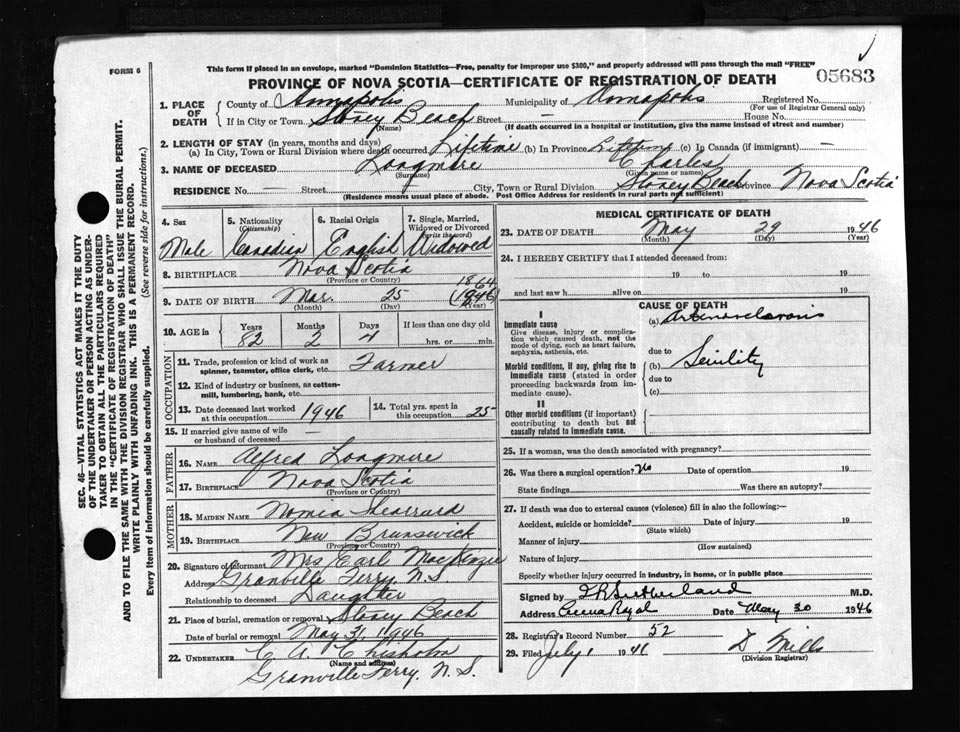 This form if placed in an envelope, marked "Dominion Statistics—Free, penalty for improper use $300," and properly addressed will pass through the mail "FREE"
FORM 6
PROVINCE OF NOVA SCOTIA—CERTIFICATE OF REGISTRATION OF DEATH
05683
1. PLACE OF DEATH
County of Annapolis Municipality of Annapolis Registered No.
(For use of Registrar General only)
If in City or Town Stoney Beach Street — House No.
(Name) (If death occurred in a hospital or institution, give the name instead of street and number)
2. LENGTH OF STAY (in years, months and days)
(a) In City, Town or Rural Division where death occurred Lifetime (b) In Province Lifetime (c) In Canada (if immigrant) —
3. NAME OF DECEASED Longmire Charles
(Surname) (Given name or names)
RESIDENCE No. — Street City, Town or Rural Division Stoney Beach Province Nova Scotia
(Residence means usual place of abode. Post Office Address for residents in rural parts not sufficient)
4. Sex Male
5. Nationality (Citizenship) Canadian
6. Racial Origin English
7. Single, Married, Widowed or Divorced (write the word) Widowed
8. BIRTHPLACE Nova Scotia
(Province or Country)
1864
9. DATE OF BIRTH Mar. 25 (1946)
(Month) (Day) (Year)
10. AGE in Years Months Days If less than one day old
82 2 4 hrs. or min.
OCCUPATION
11. Trade, profession or kind of work as spinner, teamster, office clerk, etc. Farmer
12. Kind of industry or business, as cotton-mill, lumbering, bank, etc.
13. Date deceased last worked at this occupation 1946
14. Total yrs. spent in this occupation 25
15. If married give name of wife or husband of deceased
FATHER
16. NAME Alfred Longmire
17. BIRTHPLACE Nova Scotia
(Province or Country)
MOTHER
18. MAIDEN NAME
19. BIRTHPLACE New Brunswick
(Province or Country)
20. Signature of Informant Mrs Earl MacKenzie
Address Granville Ferry, N.S
Relationship to deceased Daughter
21. Place of burial, cremation or removal Stoney Beach
Date of burial or removal May 31, 1946
22. UNDERTAKER C A Chisholm
(Name and address)
Granville Ferry. N. S.
MEDICAL CERTIFICATE OF DEATH
23. DATE OF DEATH May 29 1946
(Month) (Day) (Year)
24. I HEREBY CERTIFY that I attended deceased from:
19 to 19
and last saw h alive on 19
CAUSE OF DEATH
I
Immediate cause
Give disease, injury or complication which caused death, not the mode of dying, such as heart failure, asphyxia, asthenia, etc.
(a) Arteriosclerosis
due to
Morbid conditions, if any, giving rise to immediate cause (stated in order proceeding backwards from immediate cause).
(b) Senility
due to
(c)
II
Other morbid conditions (if important) contributing to death but not causally related to immediate cause.
25. If a woman, was the death associated with pregnancy?
26. Was there a surgical operation? No Date of operation 19
State findings Was there an autopsy?
27. If death was due to external causes (violence) fill in also the following:—
Accident, suicide or homicide? Date of injury 19
(State which)
Manner of injury
(How sustained)
Nature of injury
Specify whether injury occurred in industry, in home, or in public place
Signed by Sutherland M.D.
Address Anna Royal Date May 30 1946
28. Registrar's Record Number 52
29. Filed July 1 1946 D. Mills
(Division Registrar)
SEC. 46—VITAL STATISTICS ACT MAKES IT THE DUTY OF THE UNDERTAKER OR PERSON ACTING AS UNDERTAKER TO OBTAIN ALL THE PARTICULARS REQUIRED IN THE "CERTIFICATE OF REGISTRATION OF DEATH" AND TO FILE THE SAME WITH THE DIVISION REGISTRAR WHO SHALL ISSUE THE BURIAL PERMIT.
WRITE PLAINLY WITH UNFADING INK. THIS IS A PERMANENT RECORD.
Every item of information should be carefully supplied. (See reverse side for instructions.)